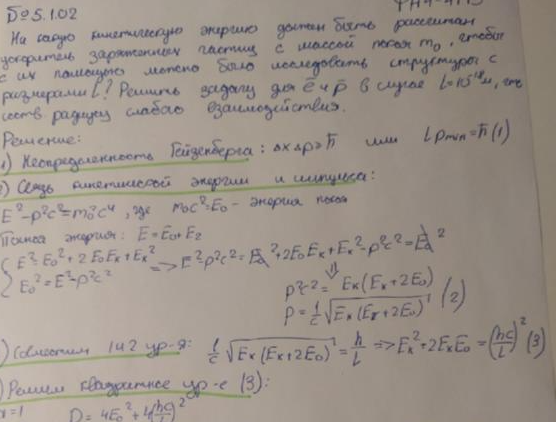 №5.1.02
На какую кинетическую энергию должен быть рассчитан
ускоритель заряженных частиц с массой покоя m₀, чтобы
с их помощью можно было исследовать структуры с
размерами L? Решить задачу для ē и p̄ в случае L=10⁻¹⁸м, что
есть радиус слабого взаимодействия.
Решение:
1) Неопределенность Гейзенберга: ΔxΔp≥ħ или Lpmin=ħ(1)
) Связь кинетической энергии и импульса:
E²-p²c²=m₀²c⁴, где m₀c²=E₀ - энергия покоя
Полная энергия: E=E₀+E₂
{ E²=E₀²+2E₀Eₖ+Eₖ² => E²-p²c²=E₀²+2E₀Eₖ+Eₖ²-p²c²=E₀²
E₀²=E²-p²c²
⇓
p²c²=Eₖ(Eₖ+2E₀)
p=1/c √(Eₖ(Eₖ+2E₀)) (2)
) Совместим 1и2 ур-я: 1/c √(Eₖ(Eₖ+2E₀))=ħ/L =>Eₖ²+2EₖE₀=(ħc/L)² (3)
) Решим квадратное ур-е (3):
=1 D=4E₀²+4(ħc/L)²